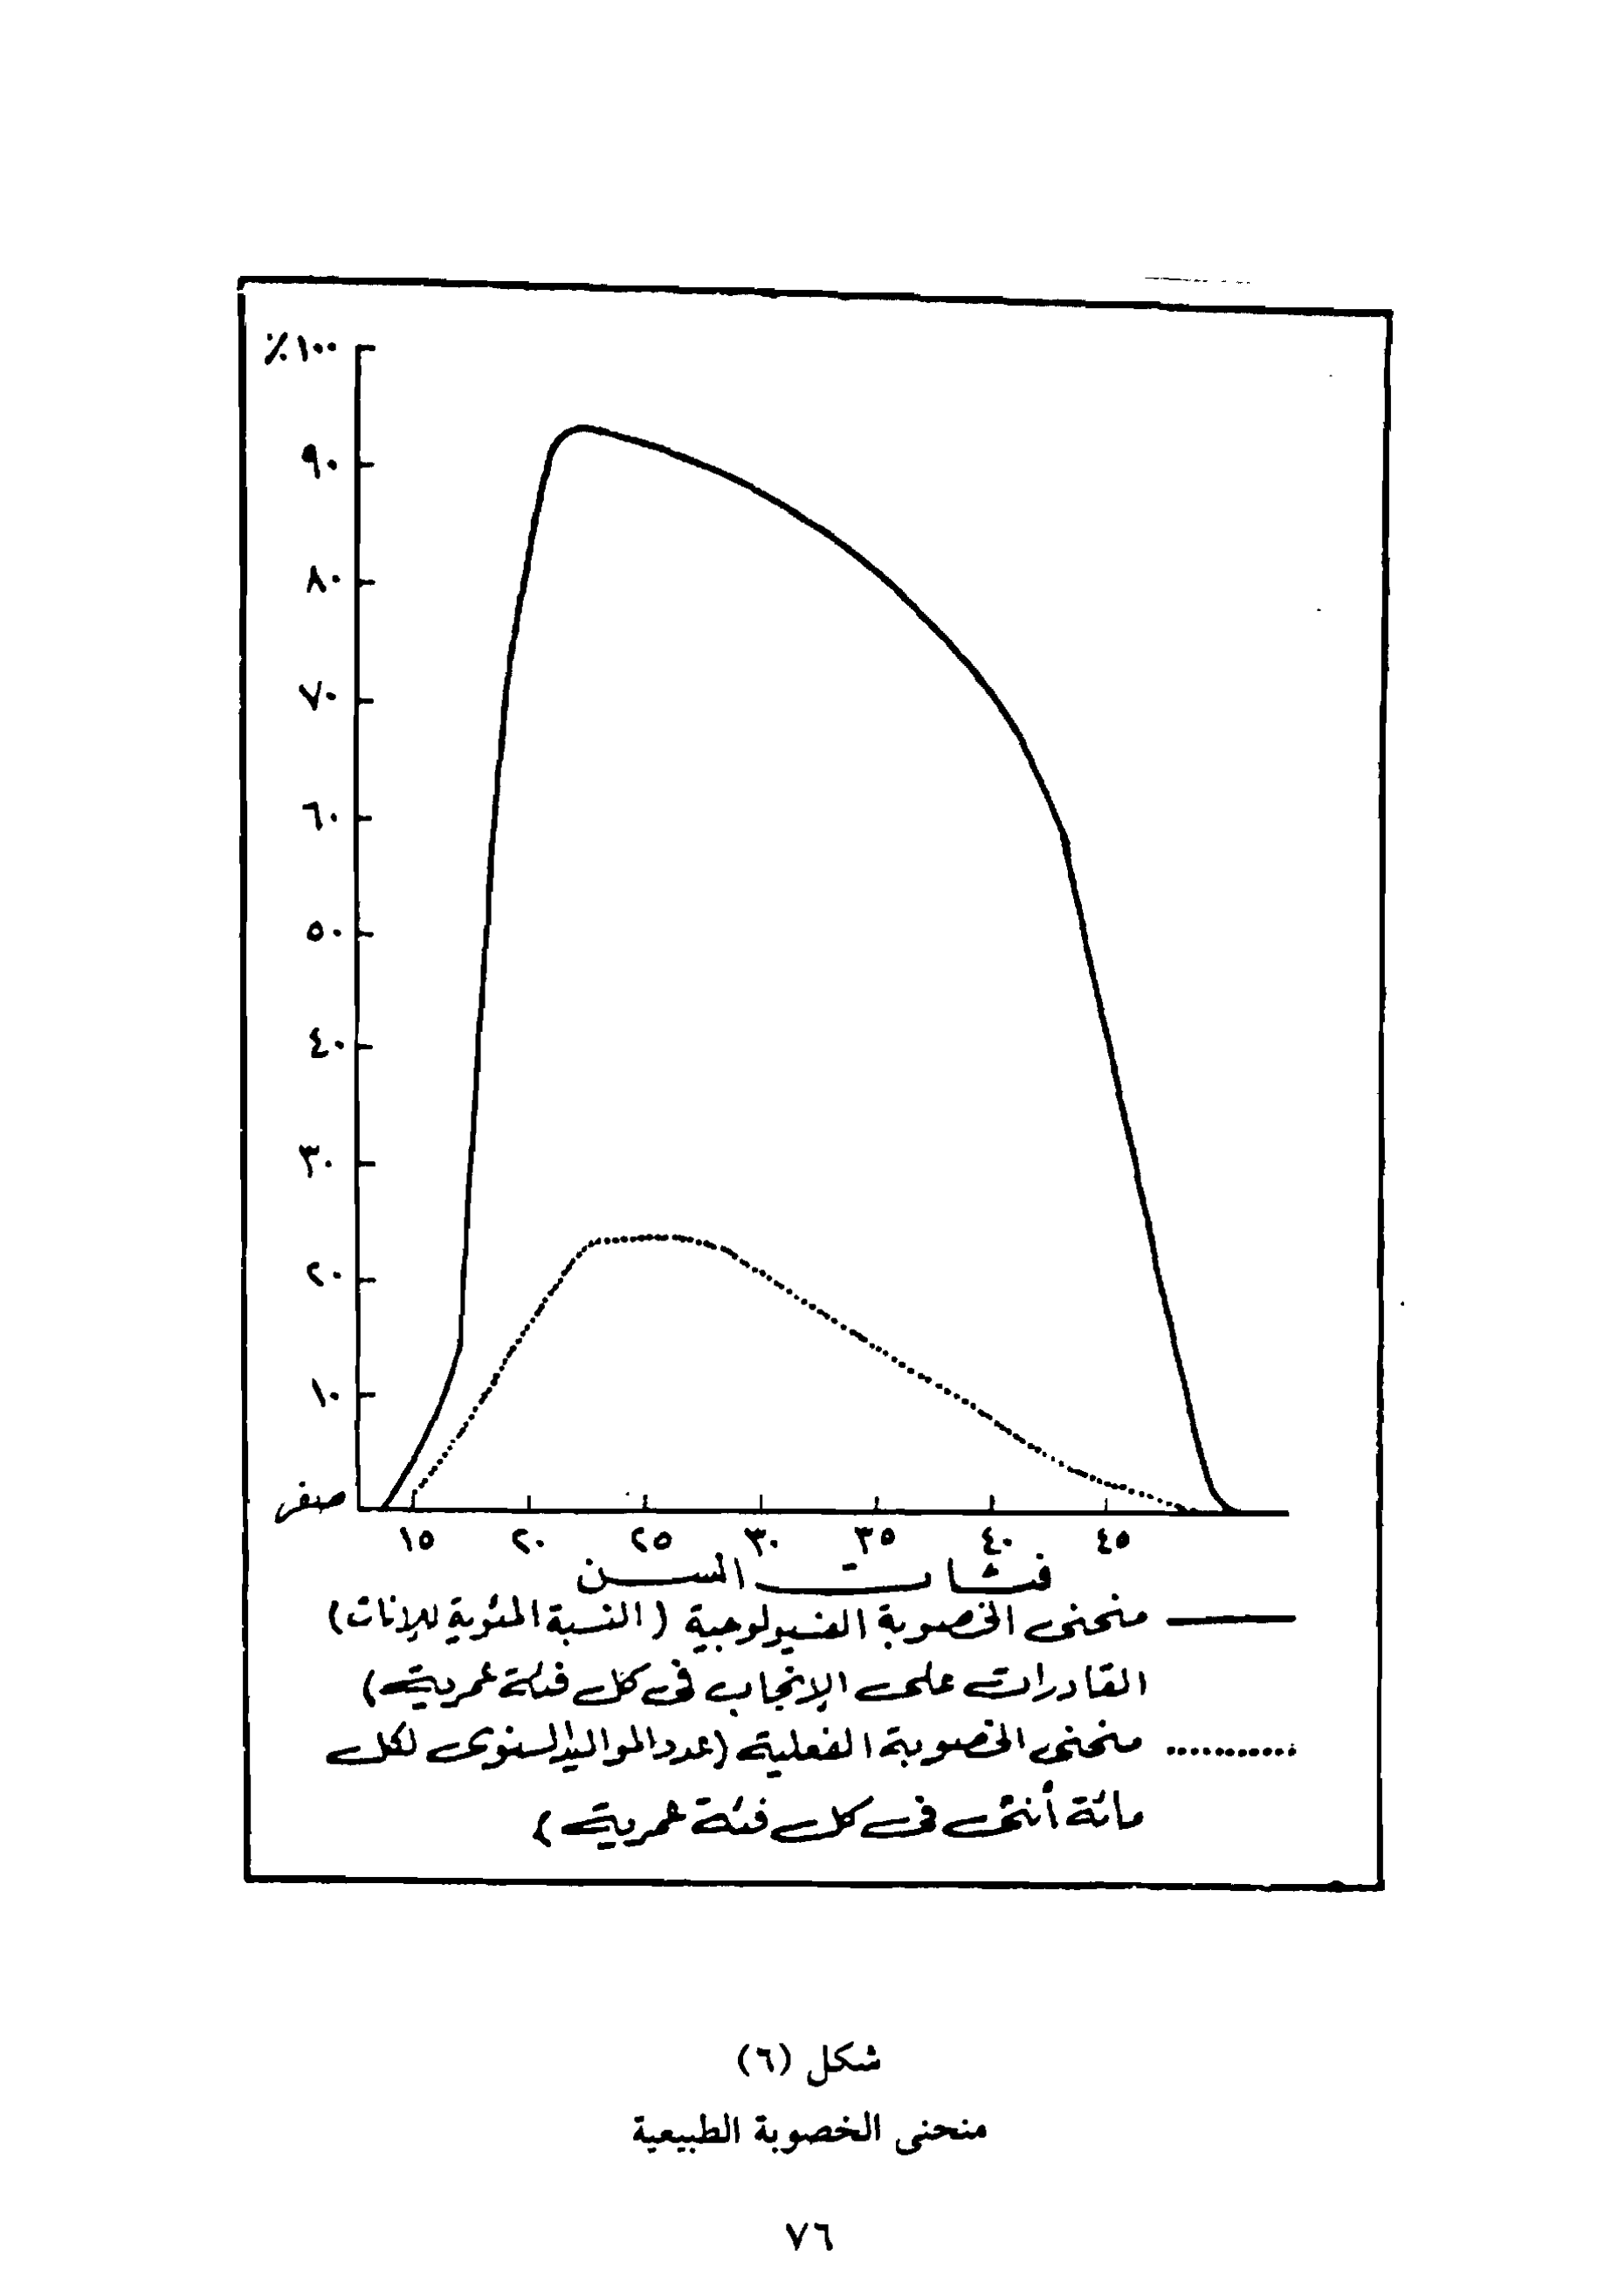 ٪١٠٠
٩٠
٨٠
٧٠
٦٠
٥٠
٤٠
٣٠
٢٠
١٠
صفر
١٥ ٢٠ ٢٥ ٣٠ ٣٥ ٤٠ ٤٥
فئات السن
منحنى الخصوبة الفسيولوجية (النسبة المئوية للإناث)
القادرات على الإنجاب فى كل فئة عمرية)
منحنى الخصوبة الفعلية (عدد المواليد السنوى لكل
مائة أنثى فى كل فئة عمرية)
شكل (٦)
منحنى الخصوبة الطبيعية
٧٦